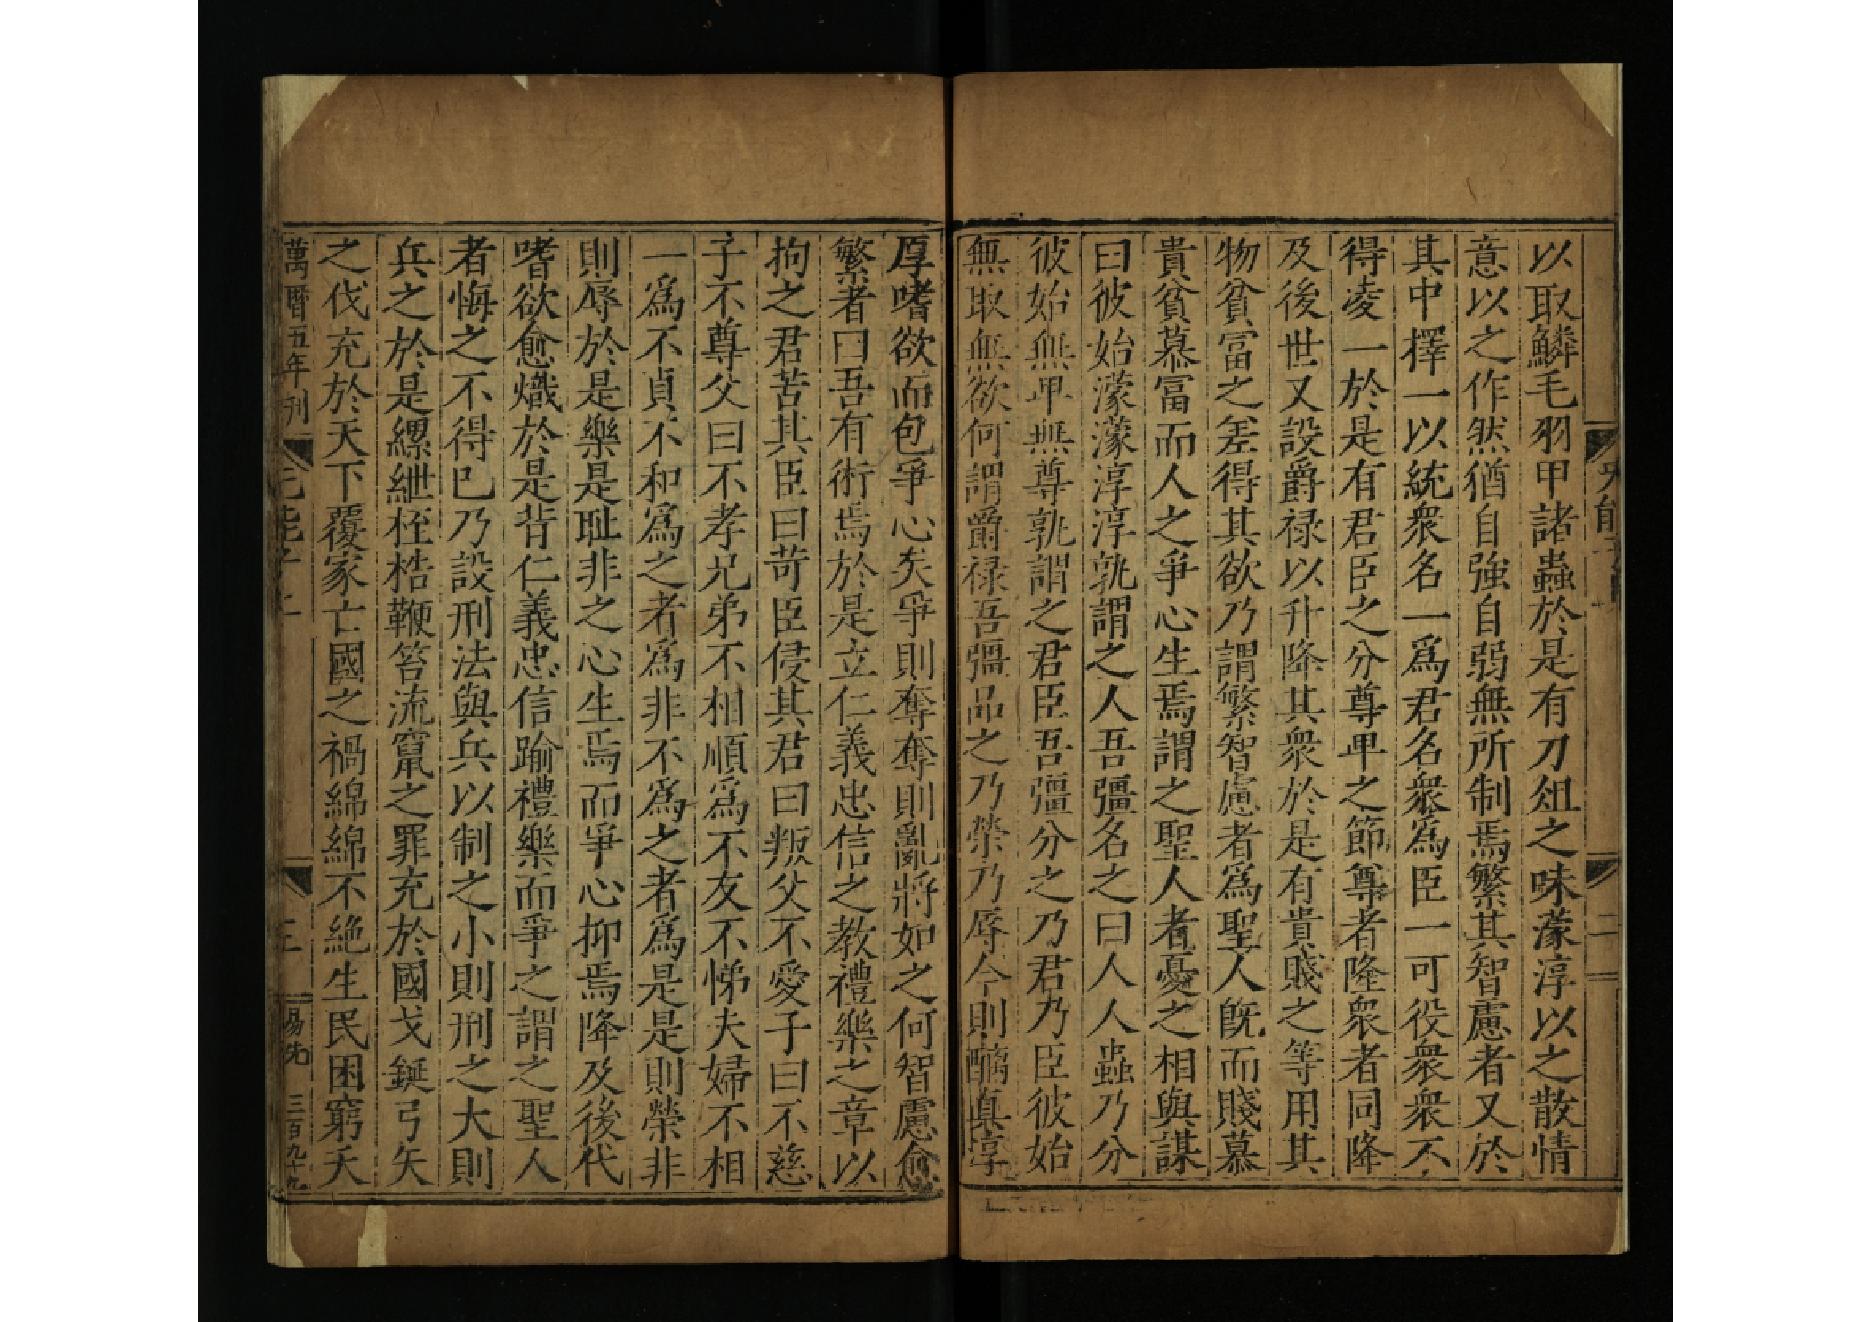 以取鱗毛羽甲諸蟲於是有刀俎之味濛淳以之散情
意以之作然猶自強自弱無所制焉繁其智慮者又於
其中擇一以統衆名一爲君名衆爲臣一可役衆衆不
得凌一於是有君臣之分尊卑之節尊者隆衆者同降
及後世又設爵禄以升降其衆於是有貴賤之等用其
物貧冨之差得其欲乃謂繁智慮者爲聖人旣而賤慕
貴貧慕冨而人之爭心生焉謂之聖人者憂之相與謀
曰彼始濛濛淳淳孰謂之人吾彊名之曰人人蟲乃分
彼始無卑無尊孰謂之君臣吾彊分之乃君乃臣彼始
無取無欲何謂爵禄吾彊品之乃榮乃辱今則醨真淳
厚嗜欲而包爭心矣爭則奪奪則亂將如之何智慮愈
繁者曰吾有術焉於是立仁義忠信之教禮樂之章以
拘之君苦其臣曰苛臣侵其君曰叛父不愛子曰不慈
子不尊父曰不孝兄弟不相順爲不友不悌夫婦不相
一爲不貞不和爲之者爲非不爲之者爲是是則榮非
則辱於是樂是耻非之心生焉而爭心抑焉降及後代
嗜欲愈熾於是背仁義忠信踰禮樂而爭之謂之聖人
者悔之不得巳乃設刑法與兵以制之小則刑之大則
兵之於是縲紲桎梏鞭笞流竄之罪充於國戈鋋弓矢
之伐充於天下覆家亡國之禍綿綿不絶生民困窮夭
萬曆五年刊
三百九十九